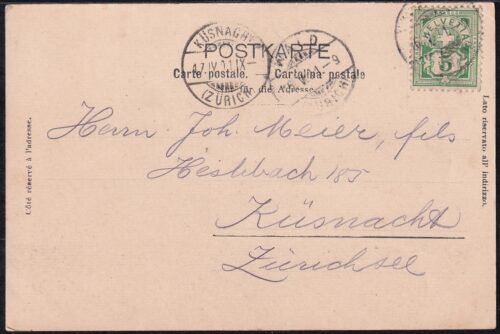 POSTKARTE
Carte postale. Cartolina postale
für die Adresse.
KÜSNACHT
17.IV.01.IX
(ZÜRICH)
WALD
HELVETIA
5
Côté réservé à l'adresse.
Lato riservato all' indirizzo.
Herrn Joh. Meier, fils
Heslibach 185
Küsnacht
Zürichsee